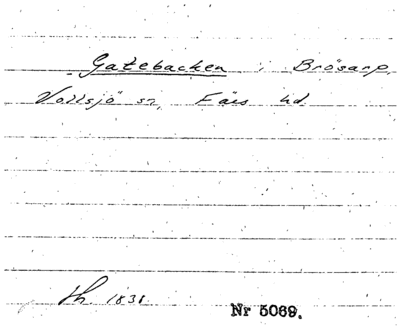 Gatebacken i Brösarp,
Vollsjö sn, Färs hd.
1831
Nr 5069.